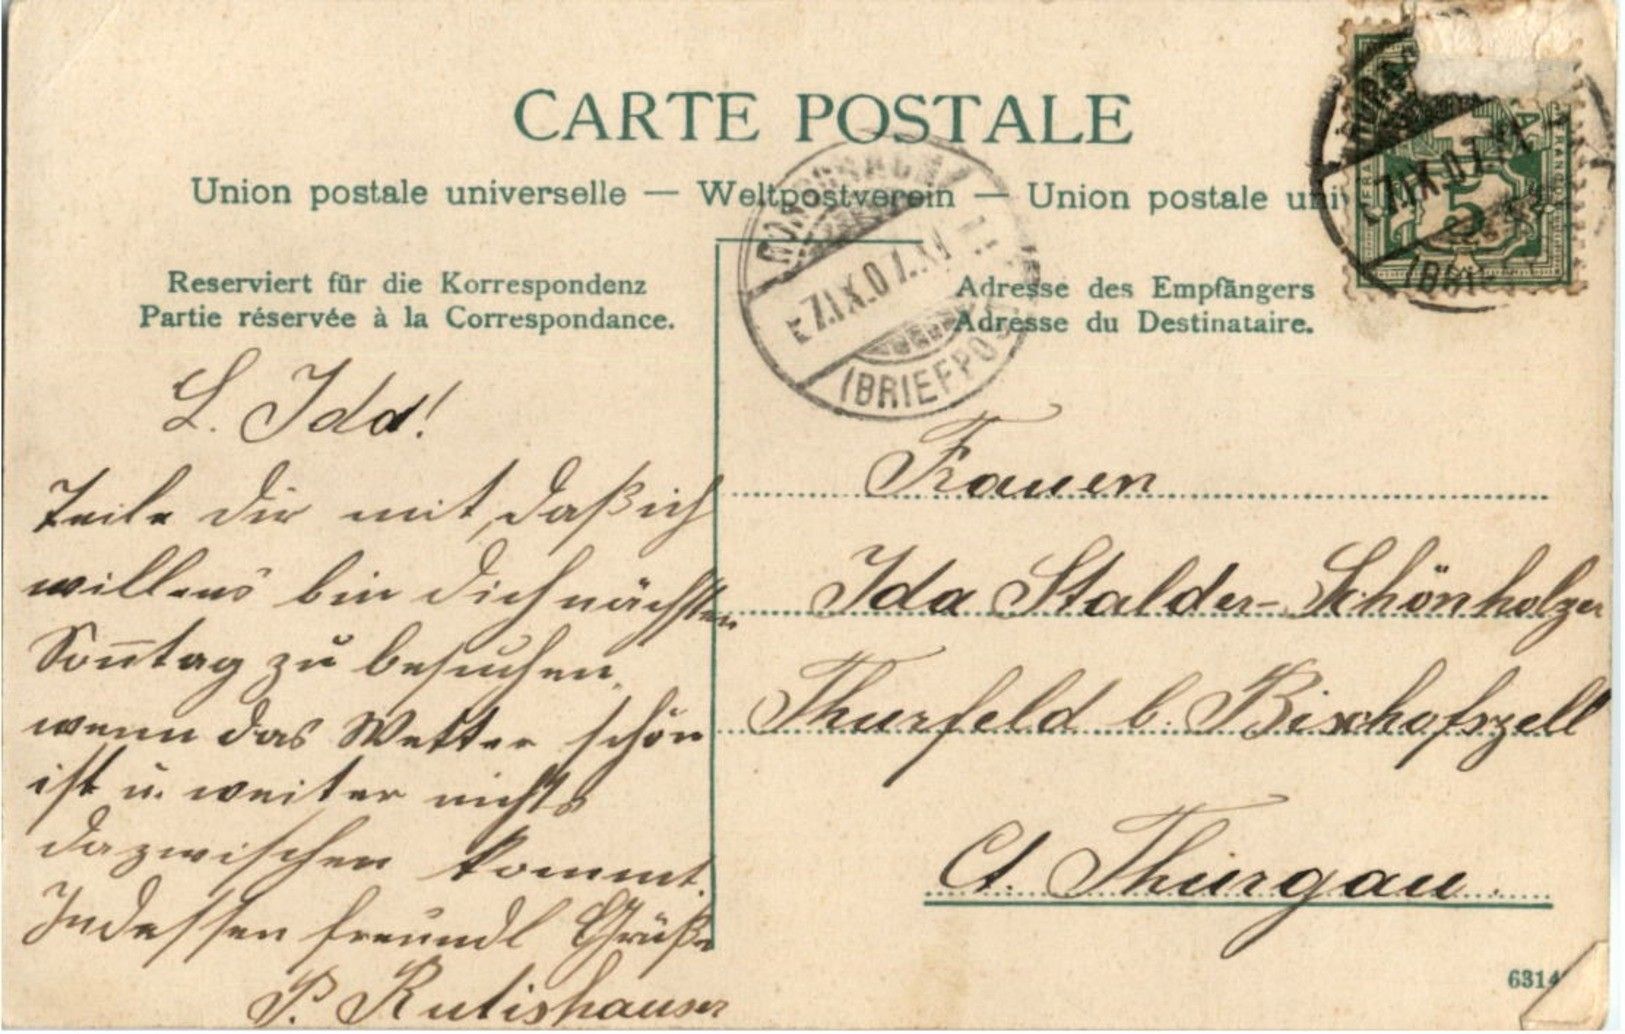 CARTE POSTALE
Union postale universelle — Weltpostverein — Union postale uni
Reserviert für die Korrespondenz
Partie réservée à la Correspondance.
Adresse des Empfängers
Adresse du Destinataire.
7.IX.07.XI
(BRIEFPO
7.IX.07.XI
5
FRANCO
(BRIE
L. Ida!
Teile dir mit, daß ich
willens bin dich nächsten
Son̄tag zu besuchen,
wenn das Wetter schön
ist u. weiter nichts
dazwischen kommt.
Indessen freundl Grüße
P. Rutishauser
Frauen
Ida Stalder-Schönholzer
Thurfeld b. Bischofszell
Ct. Thurgau.
6314